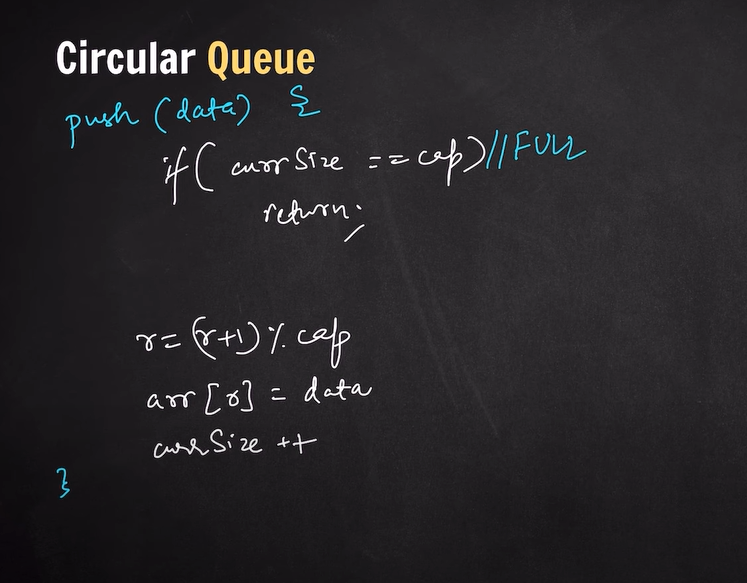 Circular Queue
push (data) {
if( currSize == cap)//FULL
return;
r = (r+1) % cap
arr [r] = data
currSize ++
}